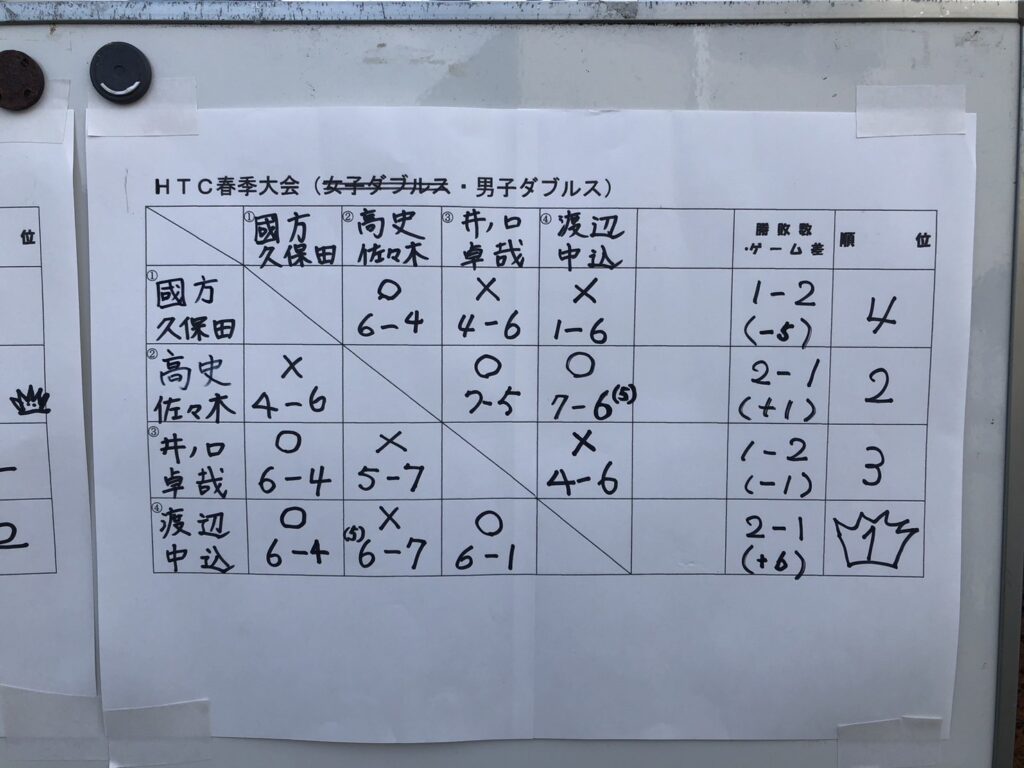 位
2
HTC春季大会（女子ダブルス・男子ダブルス）
①國方 久保田 ②高史 佐々木 ③井ノ口 卓哉 ④渡辺 中込 勝敗数・ゲーム差 順位
①國方 ○ × × 1-2
久保田 6-4 4-6 1-6 (-5) 4
②高史 × ○ ○ 2-1
佐々木 4-6 7-5 7-6(5) (+1) 2
③井ノ口 ○ × × 1-2
卓哉 6-4 5-7 4-6 (-1) 3
④渡辺 ○ × ○ 2-1
中込 6-4 (5)6-7 6-1 (+6) 1